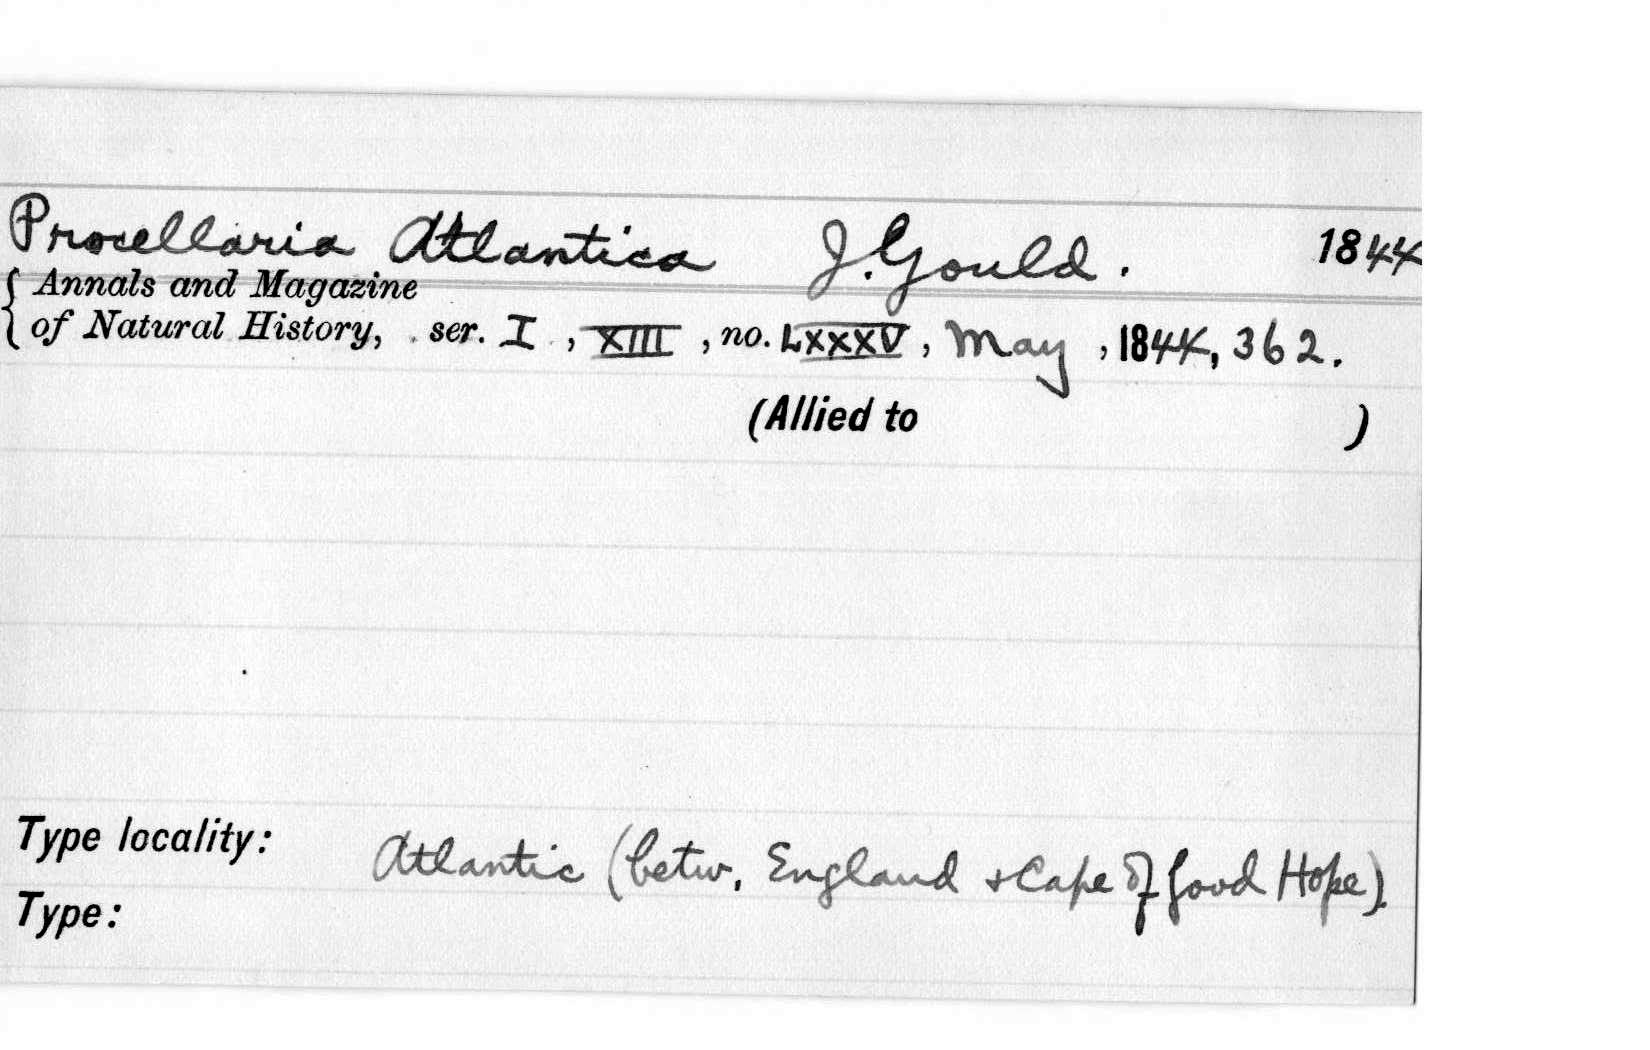 Procellaria Atlantica J. Gould. 1844
{ Annals and Magazine
of Natural History, ser. I, XIII, no. LXXXV, May, 1844, 362.
(Allied to )
Type locality: Atlantic (betw. England & Cape of Good Hope).
Type: